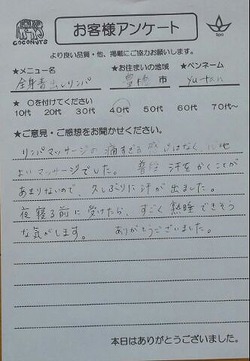 COCONUTS
お客様アンケート
より良い品質・他、掲載にご協力お願いします。
★メニュー名 ★お住まいの地域 ★ペンネーム
全身 リンパ 豊橋 市 yu-tan
★ ○を付けてください
10代 20代 30代 40代 50代 60代 70代~
★ご意見・ご感想をお聞かせください。
リンパマッサージの痛すぎる感じはなく、心地
よいマッサージでした。普段 汗をかくことが
あまりないので、久しぶりに汗が出ました。
夜寝る前に受けたら、すごく熟睡できそう
な気がします。 ありがとうございました。
本日はありがとうございました。